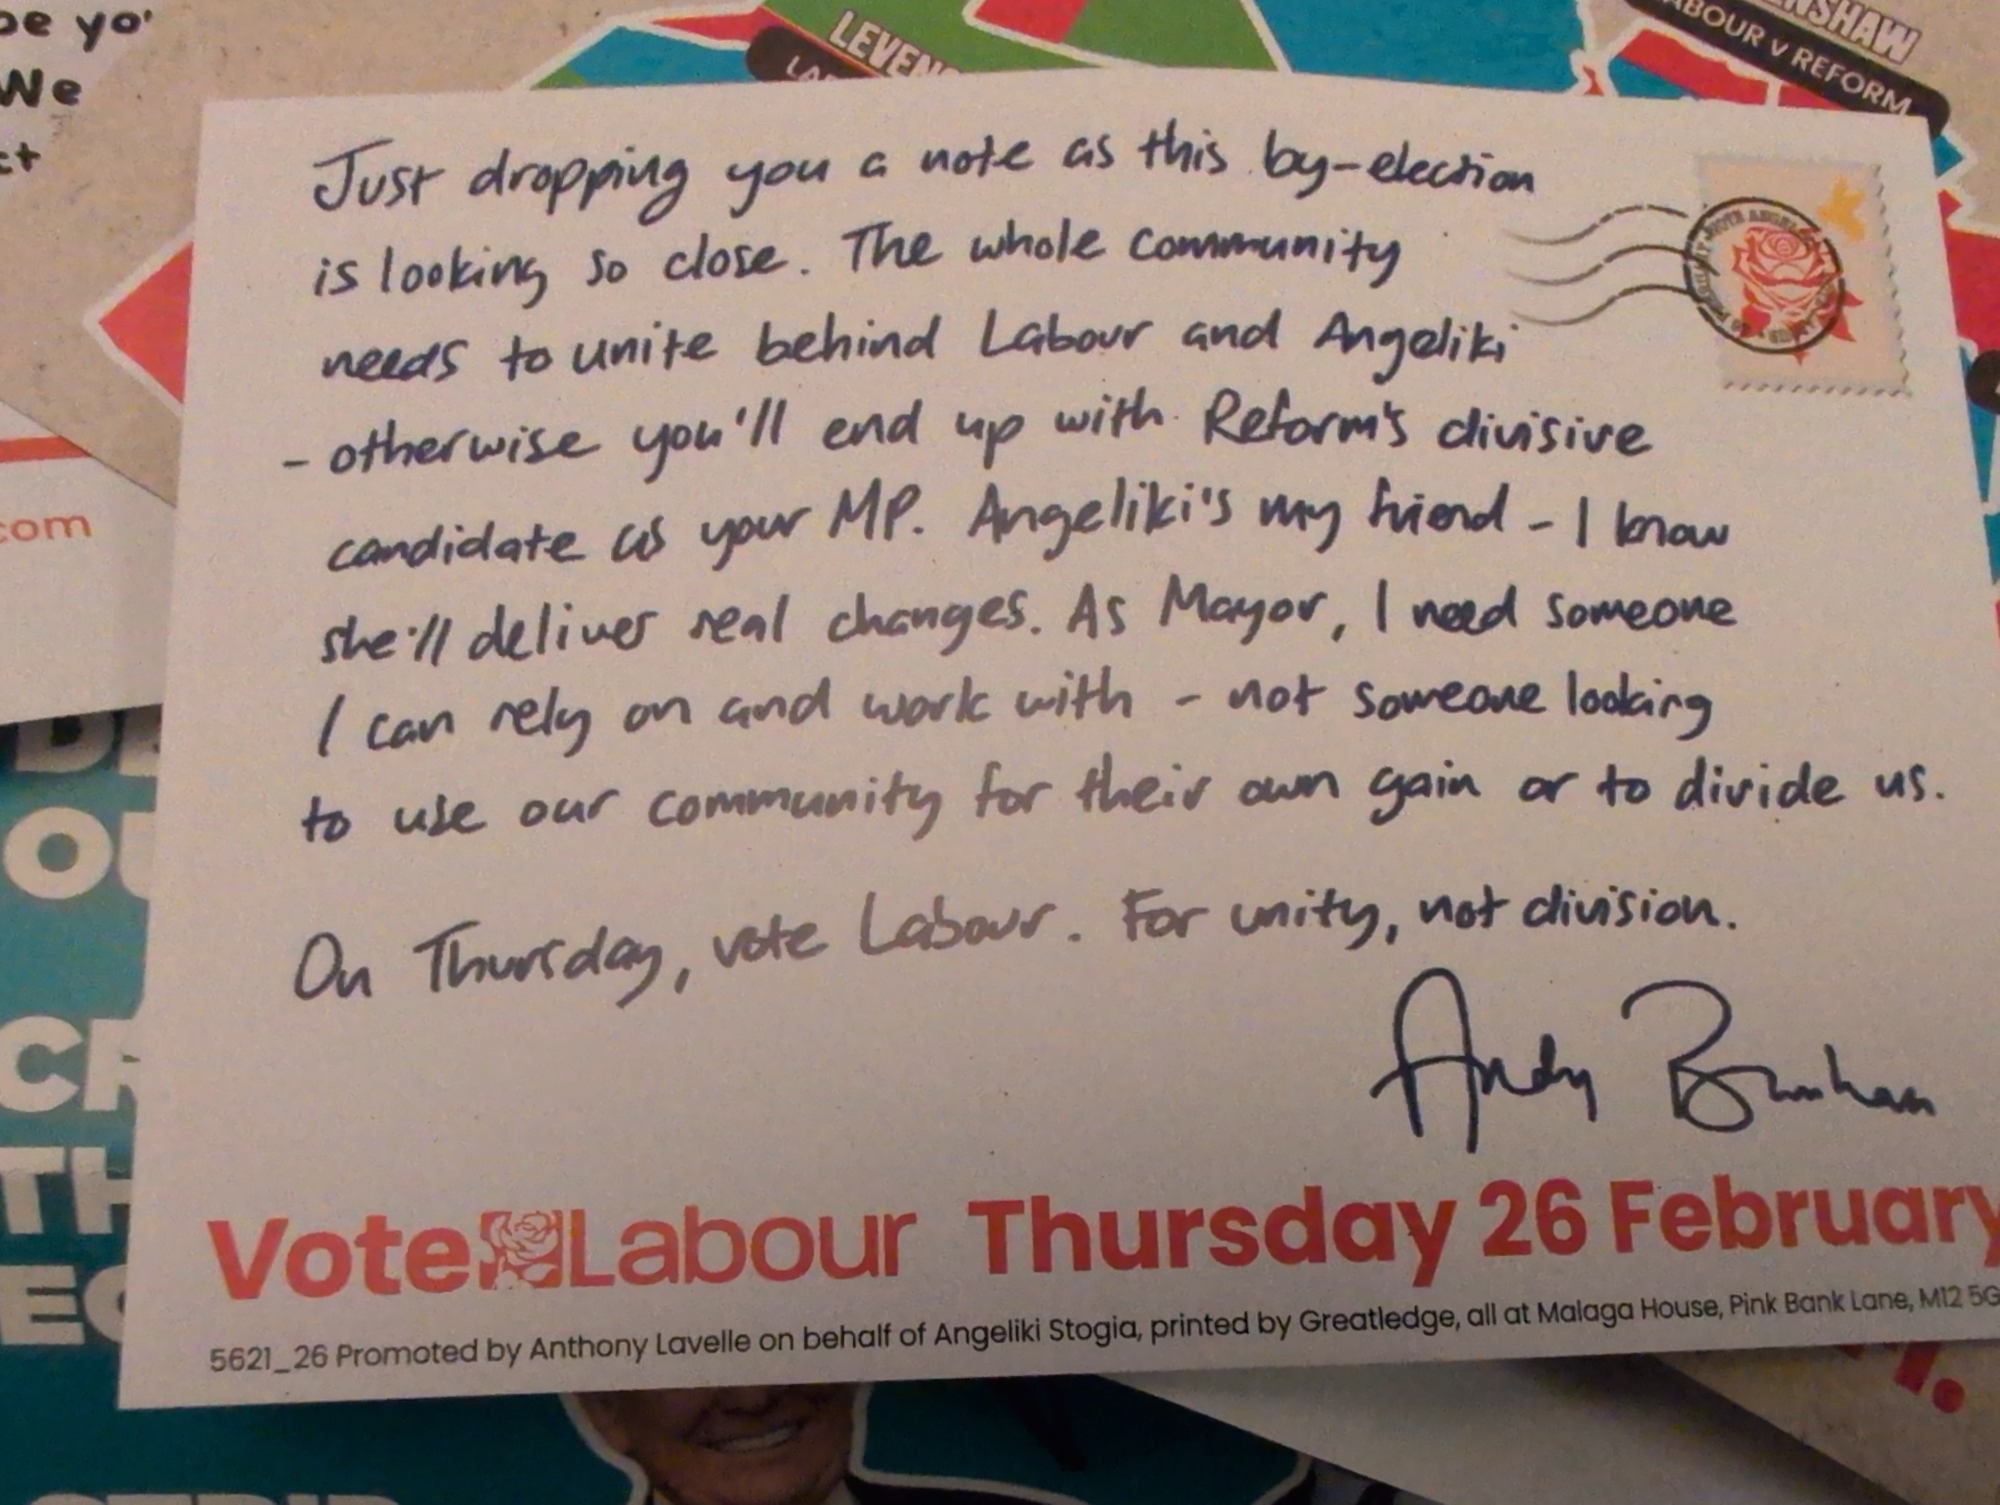 be yo'
We
ct
LEVEN
LA
ENSHAW
ABOUR v REFORM
Just dropping you a note as this by-election
is looking so close. The whole community
needs to unite behind Labour and Angeliki
- otherwise you'll end up with Reform's divisive
candidate as your MP. Angeliki's my friend - I know
she'll deliver real changes. As Mayor, I need someone
I can rely on and work with - not someone looking
to use our community for their own gain or to divide us.
On Thursday, vote Labour. For unity, not division.
Andy Burnham
Vote Labour Thursday 26 February
5621_26 Promoted by Anthony Lavelle on behalf of Angeliki Stogia, printed by Greatledge, all at Malaga House, Pink Bank Lane, M12 5G
com
OU
CR
TH